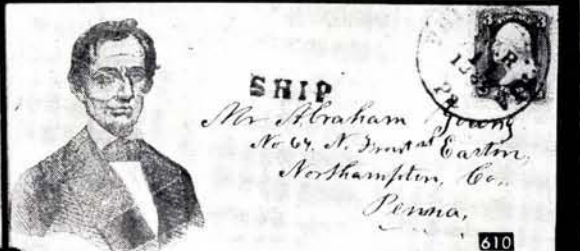 3 3
SHIP
Mr Abraham Young
No 64. N. Front St Easton,
Northampton, Co.
Penna,
610